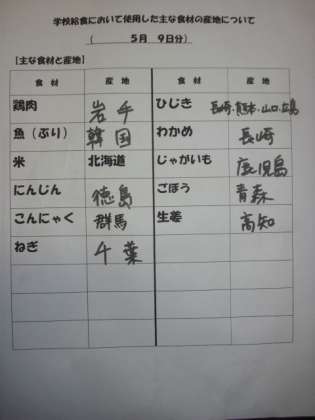 学校給食において使用した主な食材の産地について
( 5月 9日分)
[主な食材と産地]
食材 産地 食材 産地
鶏肉 岩手 ひじき 長崎・熊本・山口・広島
魚(ぶり) 韓国 わかめ 長崎
米 北海道 じゃがいも 鹿児島
にんじん 徳島 ごぼう 青森
こんにゃく 群馬 生姜 高知
ねぎ 千葉